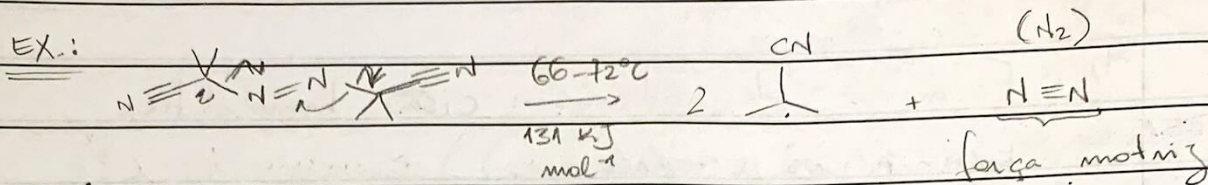 EX.:
N≡ N=N ≡N
66-72°C
131 KJ
mol⁻¹
2
CN
+
(N2)
N≡N
força motriz